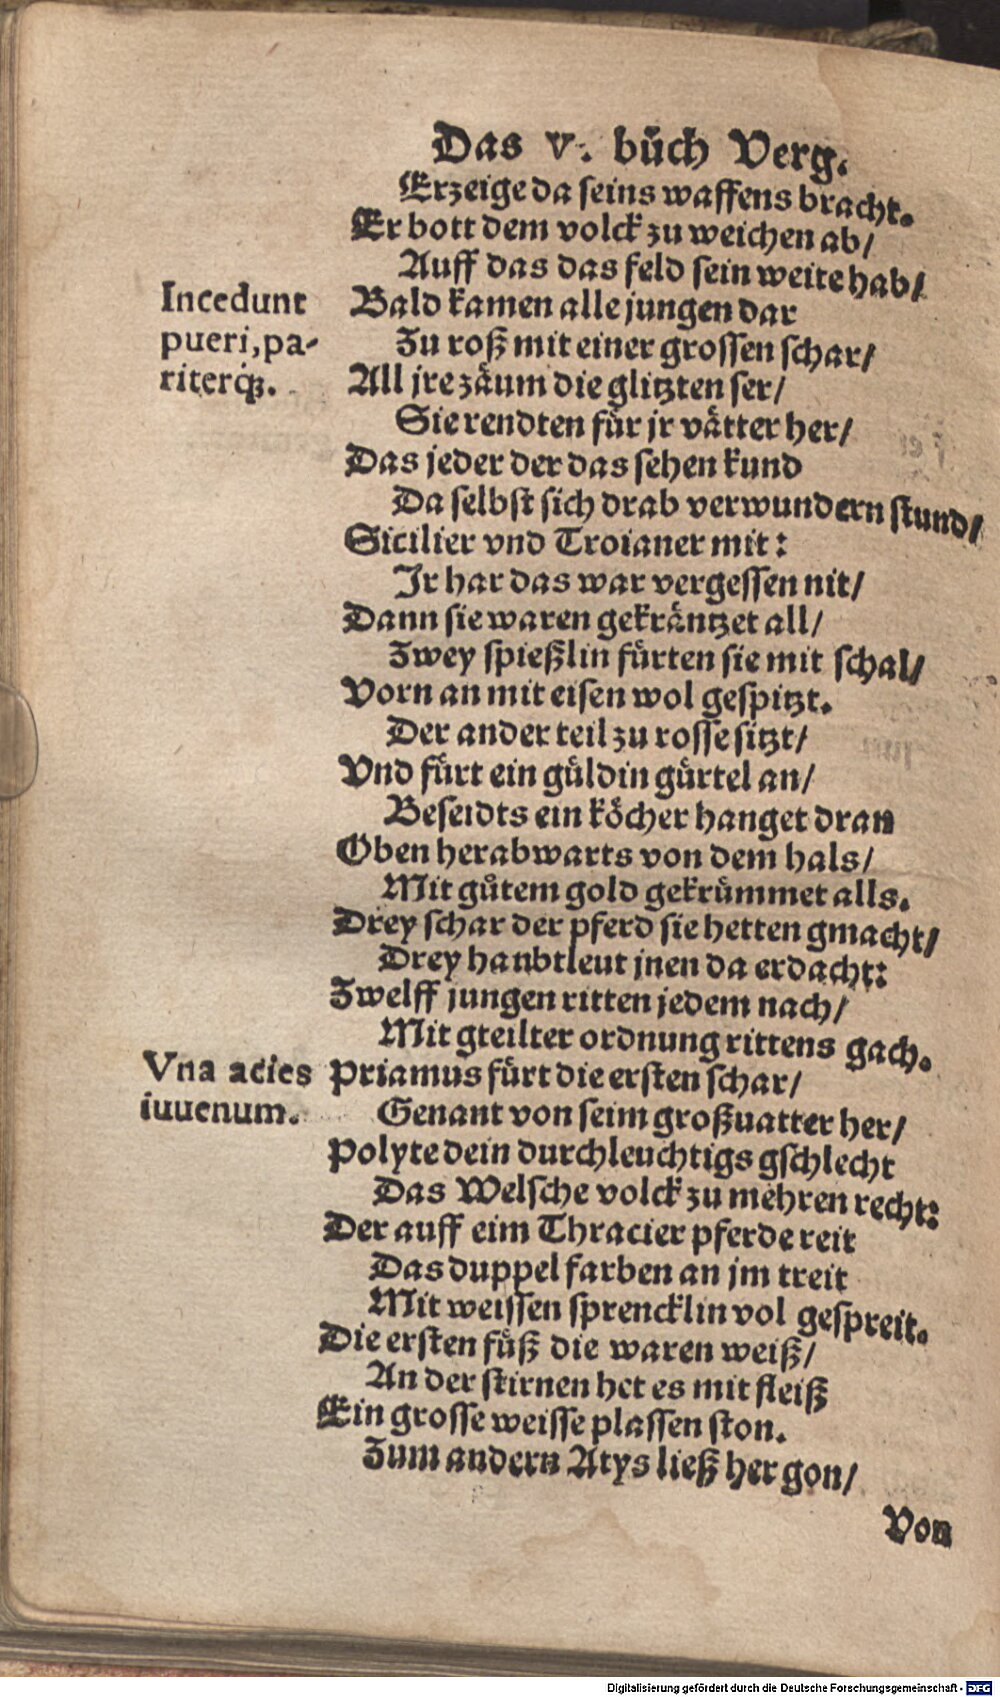 Das v. bůch Verg.
Erzeige da seins waffens bracht.
Er bott dem volck zu weichen ab/
Auff das das feld sein weite hab/
Incedunt
pueri, pa-
riterq́;.
Bald kamen alle jungen dar
Zu roß mit einer grossen schar/
All jre zäum die glitzten ser/
Sie rendten für jr vätter her/
Das jeder der das sehen kund
Da selbst sich drab verwundern stund/
Sicilier vnd Troianer mit:
Jr har das war vergessen nit/
Dann sie waren gekräntzet all/
Zwey spießlin fürten sie mit schal/
Vorn an mit eisen wol gespitzt.
Der ander teil zu rosse sitzt/
Vnd fürt ein güldin gürtel an/
Beseidts ein köcher hanget dran
Oben herabwarts von dem hals/
Mit gůtem gold gekrümmet alls.
Drey schar der pferd sie hetten gmacht/
Drey haubtleut jnen da erdacht:
Zwelff jungen ritten jedem nach/
Mit gteilter ordnung rittens gach.
Vna acies
iuuenum.
Priamus fürt die ersten schar/
Genant von seim großuatter her/
Polyte dein durchleuchtigs gschlecht
Das Welsche volck zu mehren recht:
Der auff eim Thracier pferde reit
Das duppel farben an jm treit
Mit weissen sprencklin vol gespreit.
Die ersten fůß die waren weiß/
An der stirnen het es mit fleiß
Ein grosse weisse plassen ston.
Zum andern Atys ließ her gon/
Von
Digitalisierung gefördert durch die Deutsche Forschungsgemeinschaft - DFG